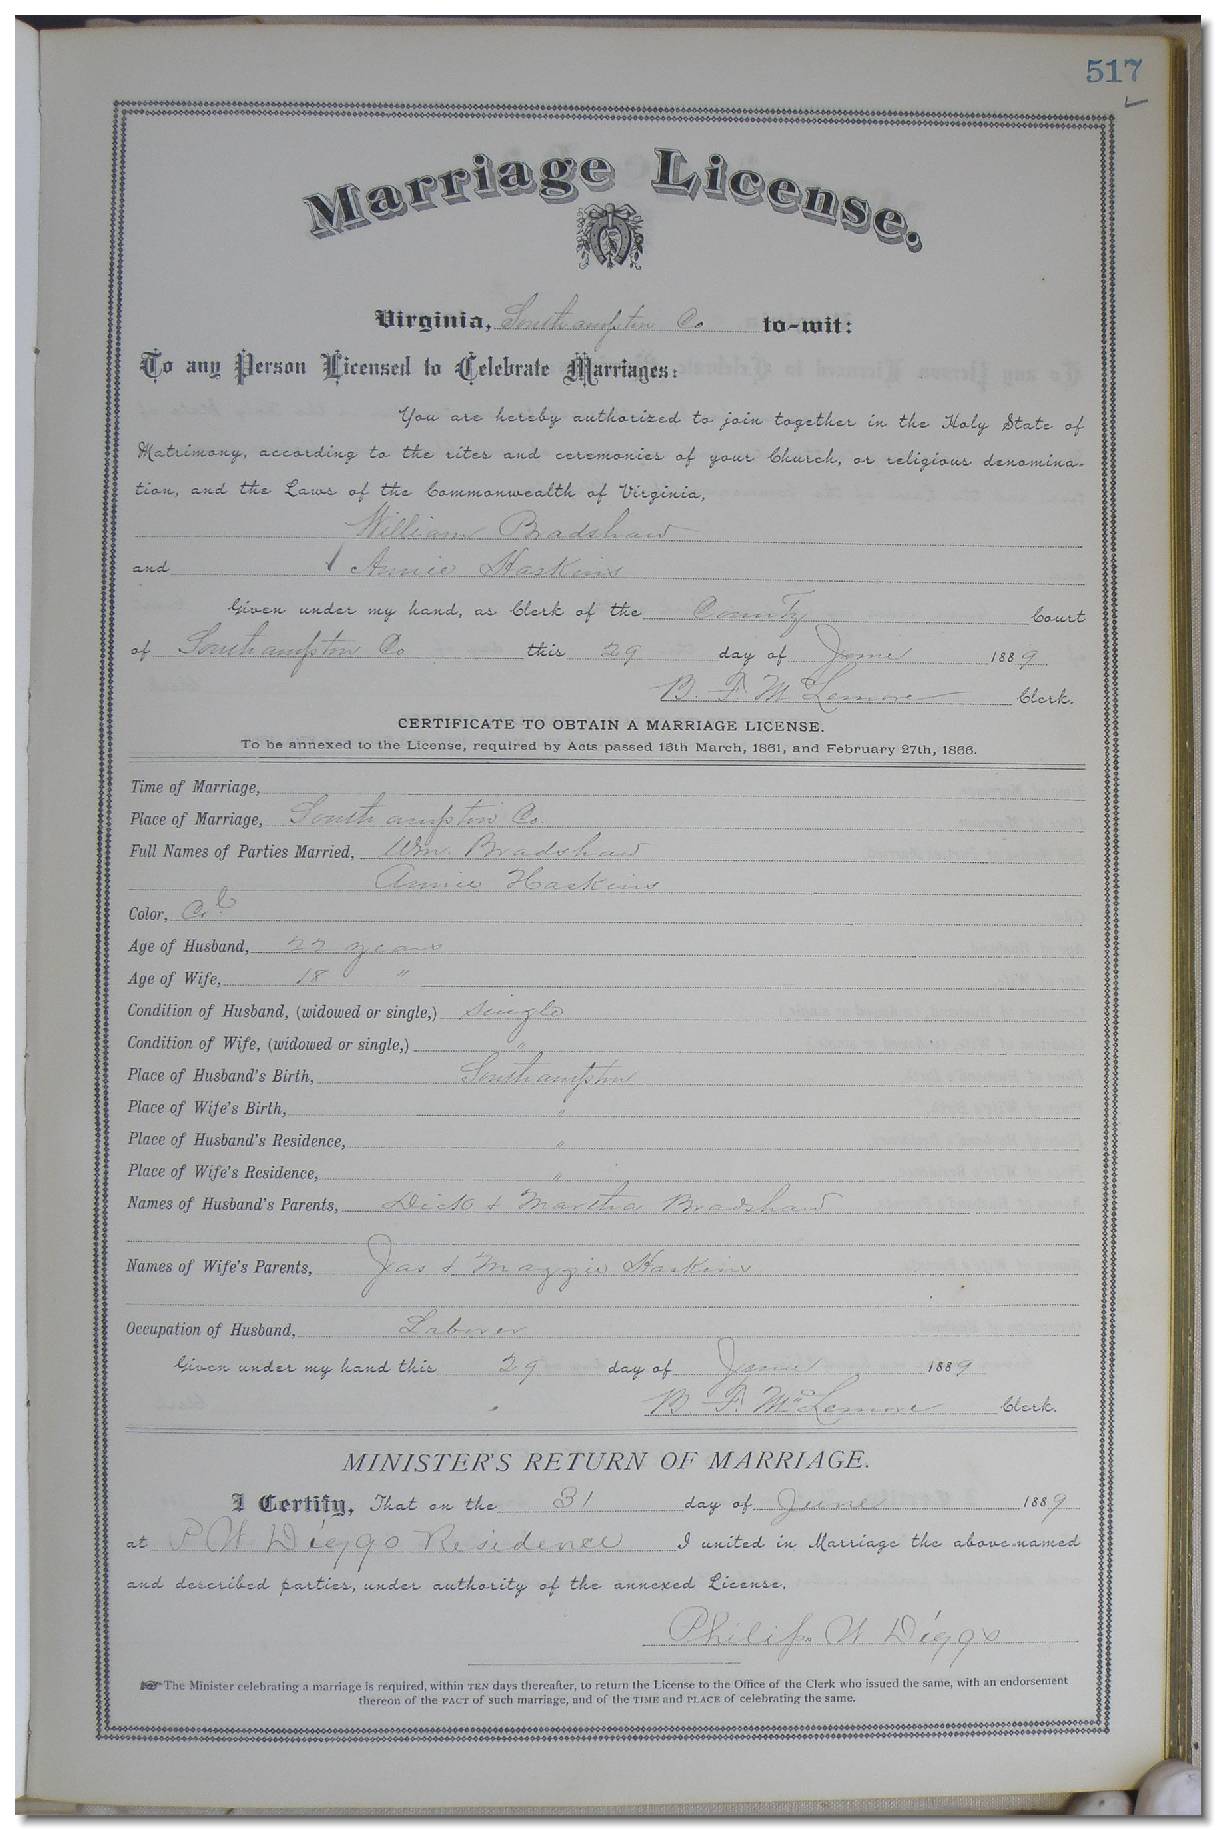 517
Marriage License.
Virginia, Southampton Co to-wit:
To any Person Licensed to Celebrate Marriages:
You are hereby authorized to join together in the Holy State of
Matrimony, according to the rites and ceremonies of your Church, or religious denomina-
tion, and the Laws of the Commonwealth of Virginia,
William Bradshaw
and Annie Haskins
Given under my hand, as Clerk of the County Court
of Southampton Co this 29 day of June 1889
B. F. McLemore Clerk.
CERTIFICATE TO OBTAIN A MARRIAGE LICENSE.
To be annexed to the License, required by Acts passed 18th March, 1861, and February 27th, 1866.
Time of Marriage,
Place of Marriage, Southampton Co.
Full Names of Parties Married, Wm. Bradshaw
Annie Haskins
Color, Col
Age of Husband, 22 years
Age of Wife, 18 "
Condition of Husband, (widowed or single,) single
Condition of Wife, (widowed or single,) "
Place of Husband's Birth, Southampton
Place of Wife's Birth, "
Place of Husband's Residence, "
Place of Wife's Residence, "
Names of Husband's Parents, Dick & Martha Bradshaw
Names of Wife's Parents, Jas & Maggie Haskins
Occupation of Husband, Laborer
Given under my hand this 29 day of June 1889
B. F. McLemore Clerk.
MINISTER'S RETURN OF MARRIAGE.
I Certify, That on the 31 day of June 1889
at P W Diggs Residence I united in Marriage the above-named
and described parties, under authority of the annexed License.
Philip W Diggs
The Minister celebrating a marriage is required, within TEN days thereafter, to return the License to the Office of the Clerk who issued the same, with an endorsement
thereon of the FACT of such marriage, and of the TIME and PLACE of celebrating the same.